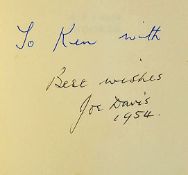 To Ken with
Best wishes
Joe Davis
1954.